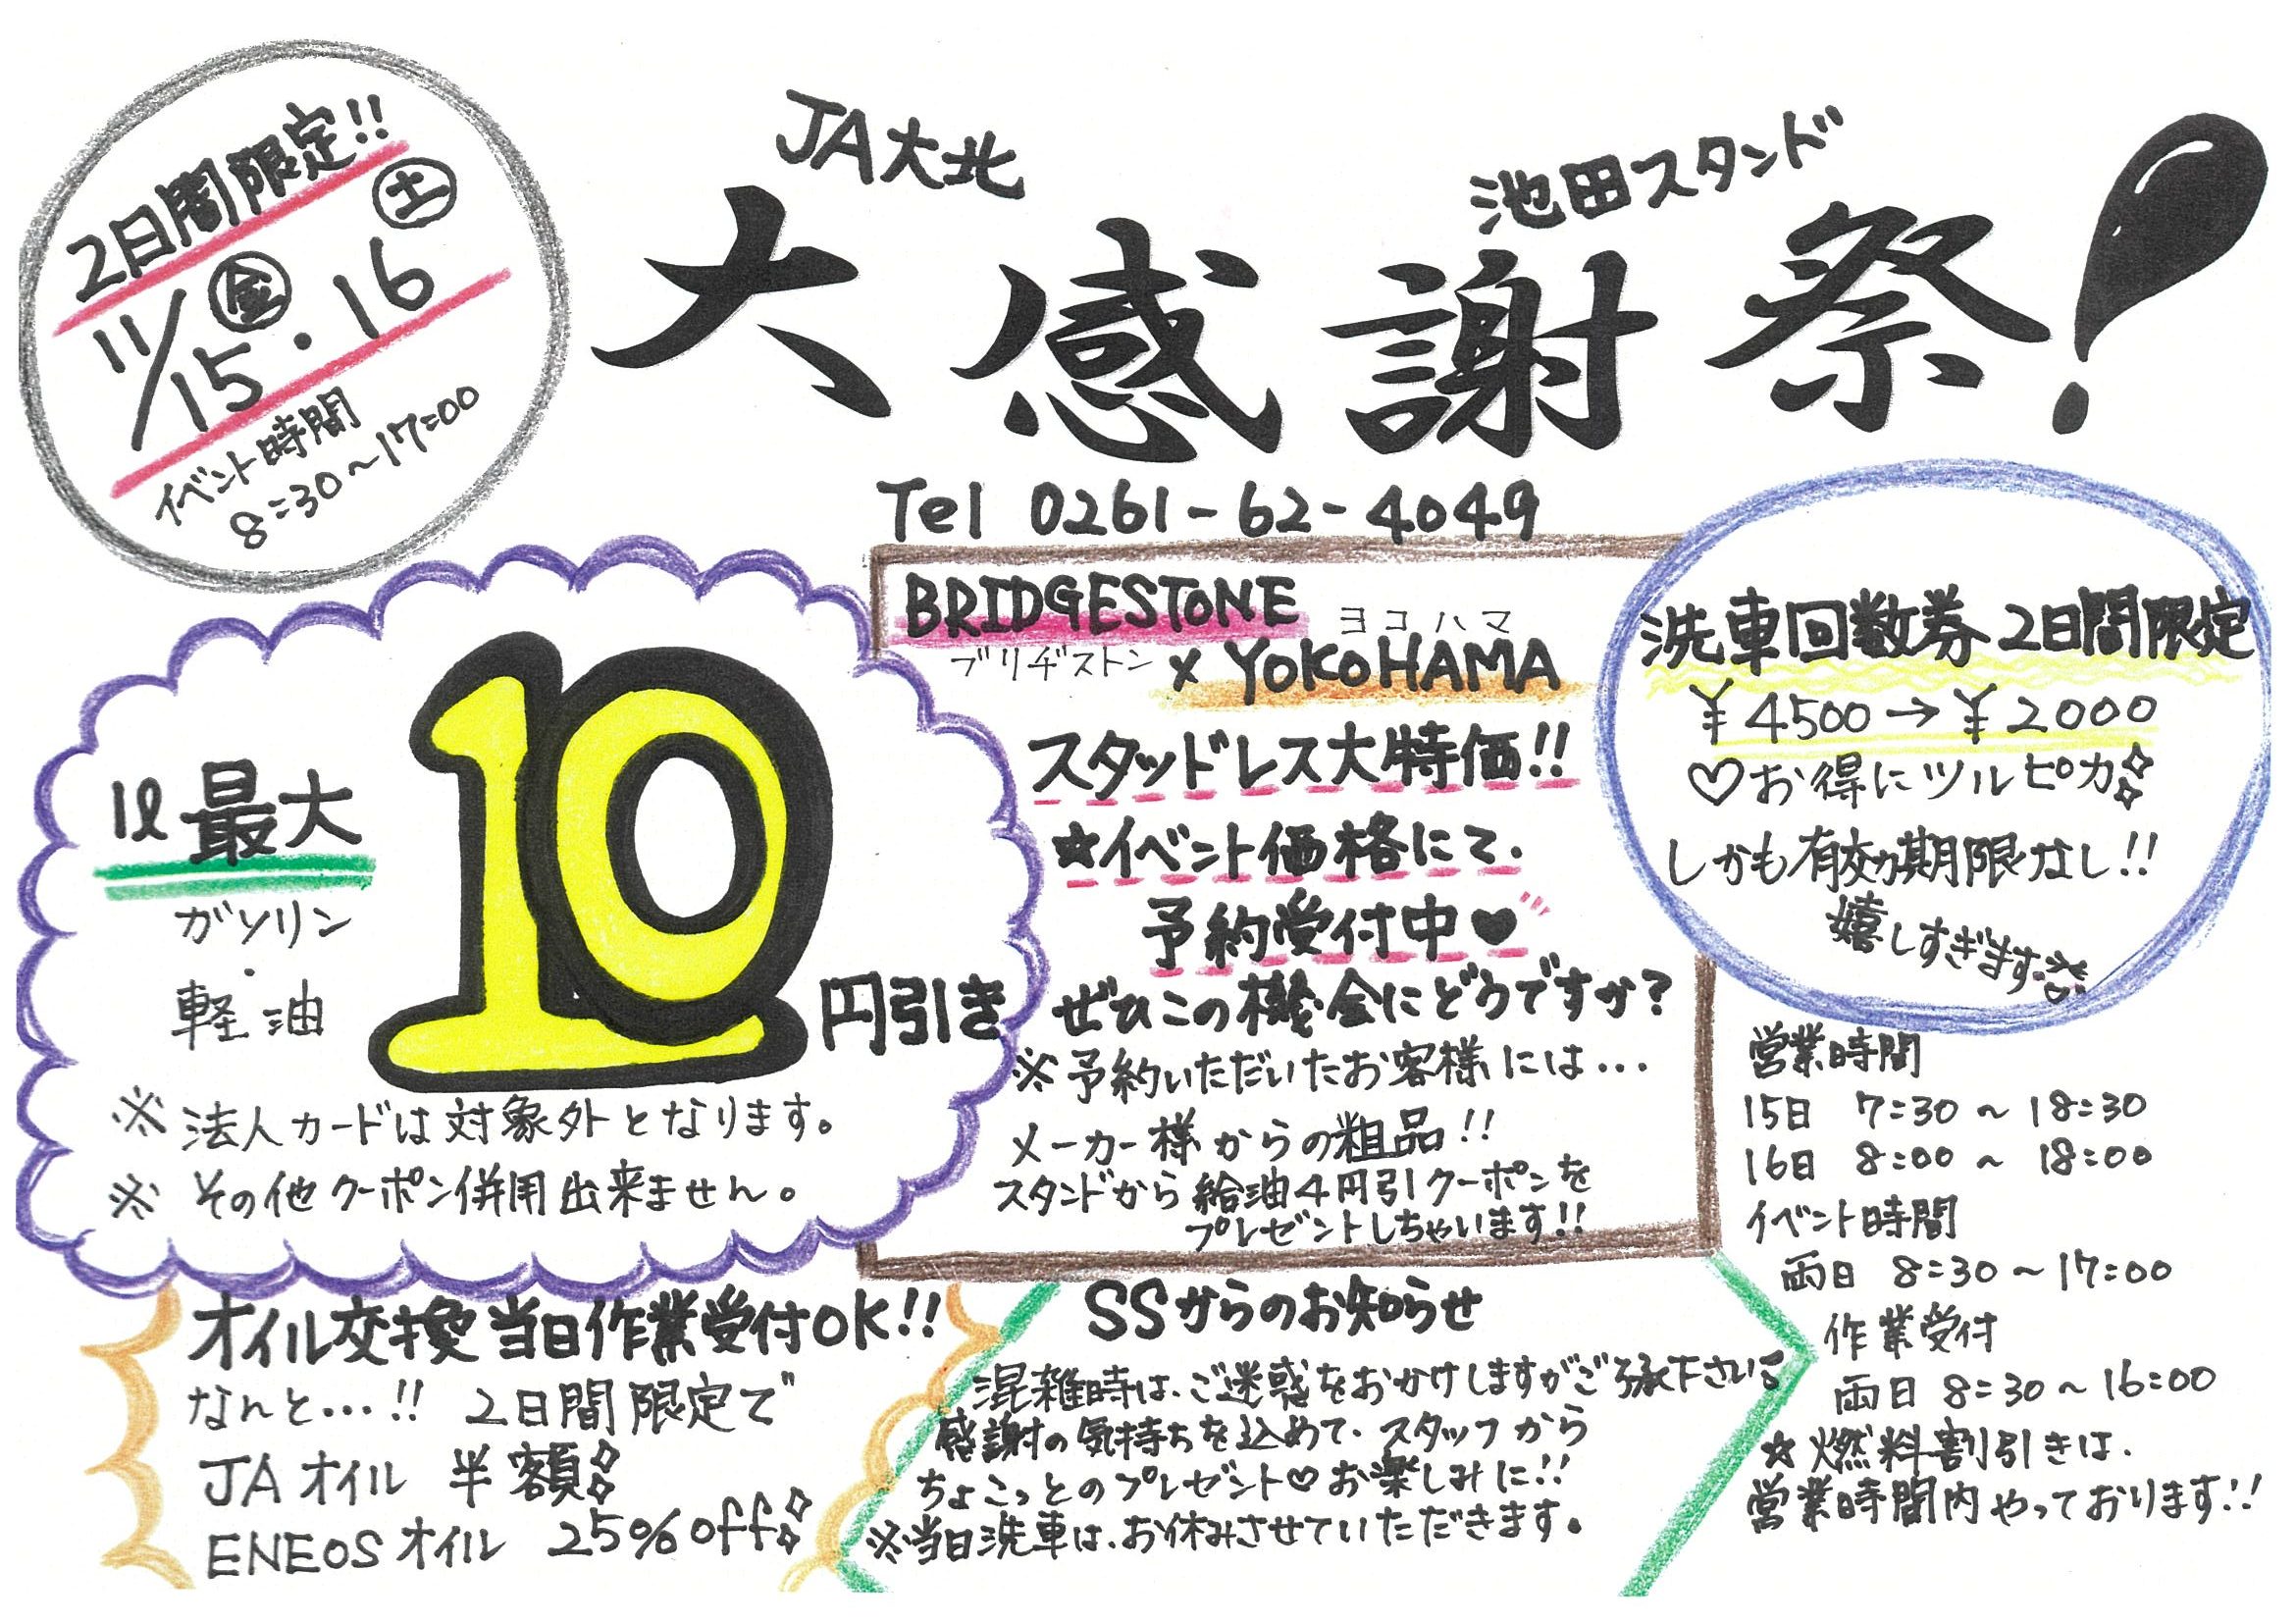 2日間限定!!
11/15㊎・16㊏
イベント時間
8:30〜17:00
JA大北
池田スタンド
大感謝祭!
Tel 0261-62-4049
1ℓ最大
ガソリン
・
軽油
10円引き
※法人カードは対象外となります。
※その他クーポン併用出来ません。
BRIDGESTONE
ブリヂストン
ヨコハマ
× YOKOHAMA
スタッドレス大特価!!
☆イベント価格にて、
予約受付中♥
ぜひこの機会にどうですか?
※予約いただいたお客様には…
メーカー様からの粗品!!
スタンドから給油4円引クーポンを
プレゼントしちゃいます!!
洗車回数券 2日間限定
¥4500→¥2000
♡お得にツルピカ
しかも有効期限なし!!
嬉しすぎます
営業時間
15日 7:30〜18:30
16日 8:00〜18:00
イベント時間
両日 8:30〜17:00
作業受付
両日 8:30〜16:00
☆燃料割引きは、
営業時間内やっております!!
オイル交換当日作業受付OK!!
なんと…!! 2日間限定で
JAオイル 半額
ENEOSオイル 25%off
SSからのお知らせ
混雑時は、ご迷惑をおかけしますがご了承下さい。
感謝の気持ちを込めて、スタッフから
ちょこっとのプレゼント♡お楽しみに!!
※当日洗車は、お休みさせていただきます。